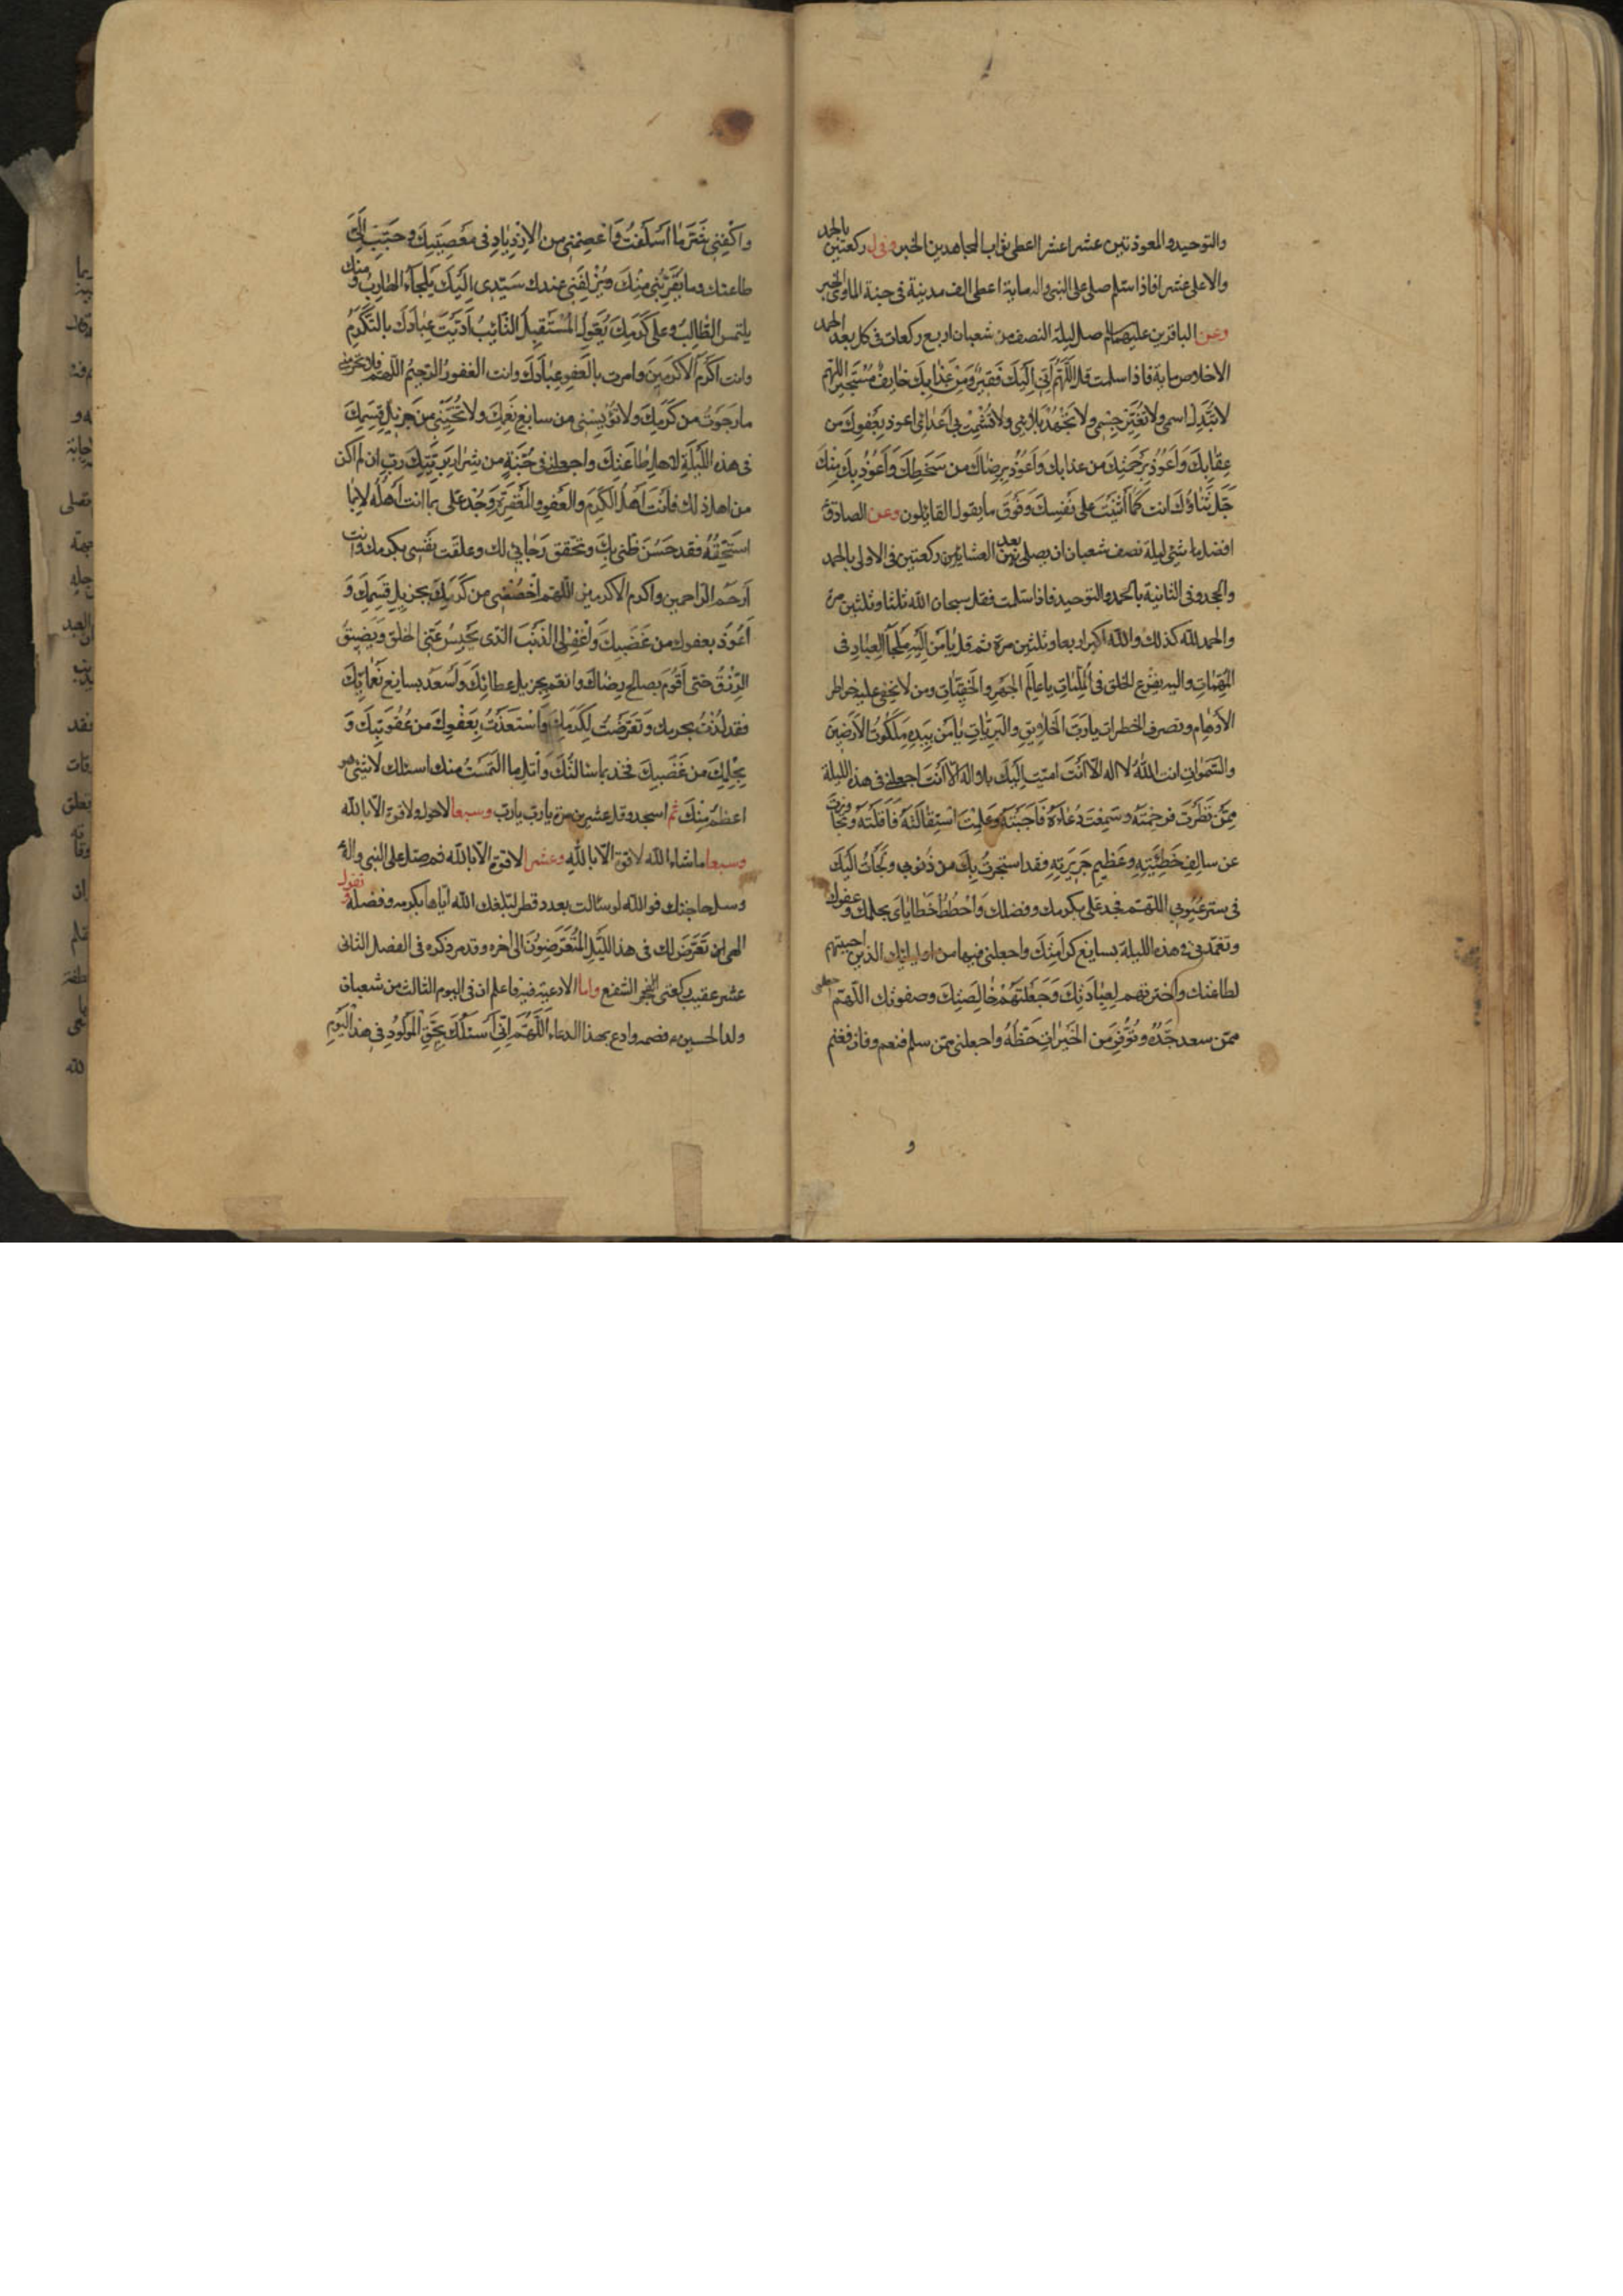 والتوحيد والمعوذتين عشرا عشرا اعطى ثواب المجاهدين الخبر وفى ركعتين بالحمد
والاعلى عشرا فاذا سلم صلى على النبى واله مايةً اعطى الف مدينة فى جنة الماوى الخبر
وعن الباقرين عليهما السلم صل ليلة النصف من شعبان اربع ركعات فى كل بعد الحمد
الاخلاص ماية فاذا سلمت قل اَللّهُمَّ اِنّى اِلَيْكَ فَقيرٌ وَمِنْ عَذابِكَ خائِفٌ مُسْتَجيرٌ اللّهم
لا تُبَدِّل اسمى ولا تُغَيِّر جِسْمى ولا تَجْهَدْ بَلائى ولا تُشْمِتْ بى اَعْدائى اعوذ بِعَفْوِكَ من
عِقابِكَ وَاَعُوذُ بِرَحْمَتِكَ من عذابك وَاَعُوذُ بِرِضاكَ من سَخَطِكَ وَاَعُوذُ بِكَ مِنْكَ
جَلَّ ثَناؤُكَ انت كَما اَثْنَيْتَ على نَفْسِكَ وَفَوْقَ ما يقول القائلون وعن الصادق
افضل ما شئى ليلة نصف شعبان ان يصلى بعد العشائين ركعتين فى الاولى بالحمد
والجحد وفى الثانية بالحمد والتوحيد فاذا سلمت فقل سبحان الله ثلثا وثلثين مرة
والحمد لله كذلك والله اكبر اربعا وثلثين مرة ثم قل يا مَنْ اِلَيْهِ مَلْجَأُ العِبادِ فى
المُهِمّاتِ واليه يفزع الخلق فى المُلِمّاتِ يا عالِمَ الجَهْرِ والخَفِيّاتِ ومن لا يَخْفى عليه خواطر
الاَوْهامِ وتصرف الخطرات يا رَبَّ الخَلائِقِ والبَرِيّاتِ يا مَنْ بِيَدِهِ مَلَكُوتُ الاَرَضينَ
والسَّمَواتِ انت اللّهُ لا اله الا اَنْتَ امتّ اِلَيْكَ بلا اله الا اَنْتَ اجعلنى فى هذه الليلة
مِمَّنْ نَظَرْتَ فرحمته وسَمِعْتَ دُعاءَهُ فَاَجَبْتَهُ وَعَلِمْتَ اسْتِقالَتَهُ فَاَقَلْتَهُ وتجاوزت
عن سالِفِ خَطيئَتِهِ وعَظيمِ جَريرَتِهِ فقد استجرتُ بِكَ من ذُنوبى ولَجَأْتُ اِلَيْكَ
فى ستر عُيُوبى اللّهُمَّ فجد عَلَىَّ بكرمك وفضلك وَاحْطُطْ خَطاياىَ بحلمك وعفوك
وتغمّدنى فى هذه الليلة بسابغ كَرامَتِكَ واجعلنى فيها من اوليائك الذين اجبيتهم
لطاعتك واخترتهم لِعِبادَتِكَ وَجَعَلْتَهُمْ خالِصَتَكَ وصفوتك اللّهمّ اجعلنى
ممّن سعد جَدُّهُ وتَوَفَّرَ مِن الخَيْراتِ حَظُّهُ واجعلنى ممّن سلم فنعم وفاز فغنم
و
واكْفِنى شَرَّ ما اَسْلَفْتُ وَاعْصِمْنى من الاِزْدِيادِ فى مَعْصِيَتِكَ وحَبِّبْ اِلَىَّ
طاعتك وما يُقَرِّبُنى مِنْكَ ويُزْلِفُنى عندك سَيِّدى اِلَيْكَ يَلْجَأُ الهارِبُ ومنك
يلتمس الطّالِبُ وعلى كَرَمِكَ يُعَوِّلُ المُسْتَقيلُ التّائِبُ اَدَّبْتَ عِبادَكَ بالتَّكَرُّمِ
وانت اَكْرَمُ الاَكْرَمينَ وامرت بالعَفْوِ عِبادَكَ وانت الغفورُ الرّحيمُ اللّهمّ فلا تحرمنى
ما رَجَوْتُ من كَرَمِكَ ولا تُؤْيِسْنى من سابغ نِعَمِكَ ولا تُخَيِّبْنى مِنْ جَزيلِ قِسَمِكَ
فى هذه اللَّيْلَةِ لاهلِ طاعَتِكَ واجعلنى فى جُنَّةٍ من شِرارِ بَرِيَّتِكَ ربّ ان لم اكن
من اهل ذلك فاَنْتَ اَهْلُ الكَرَمِ والعَفْوِ والمَغْفِرَةِ وَجُدْ عَلَىَّ بما انت اَهْلُه لا بما
اَسْتَحِقُّهُ فقد حَسُنَ ظَنّى بِكَ وتَحَقَّقَ رَجائى لك وعلقت نَفْسى بكرمك وانت
اَرْحَمُ الرّاحمين واكرم الاكرمين اللّهمّ اخْصُصْنى من كَرَمِكَ بجزيلِ قِسَمِكَ وَ
اَعُوذُ بعفوك من غَضَبِكَ وَاغْفِرْ لِىَ الذَّنْبَ الّذى يَحْبِسُ عَنّى الخلق وَيُضَيِّقُ
الرِّزْقُ حتى اَقُومَ بصالح رِضاكَ وانعم بجزيل عطائِكَ وَاَسْعَدَ بسابغ نَعْمائِكَ
فقد لُذْتُ بحرمك وتَعَرَّضْتُ لِكَرَمِكَ وَاسْتَعَذْتُ بِعَفْوِكَ من عُقُوبَتِكَ وَ
بِحِلْمِكَ من غَضَبِكَ فَجُد بما سَاَلْتُكَ وَاَنِلْ ما التَمَسْتُ منك اسئلك لا شئى هو
اعظمُ مِنْكَ ثم اسجد وقل عشرين مرة يا ربّ يا ربّ وسبعا لا حول ولا قوة الّا بالله
وسبعا ما شاء الله لا قوة الّا باللّهِ وعشرا لا قوة الّا بالله ثم صلّ على النبى واله
وسل حاجتك فو اللّه لو سئالت بعدد قطر لبلّغك الله ايّاها بكرمه وفضله ثم تقول
الهى ان تَعَرَّضَ لك فى هذا اللَّيْلِ المُتَعَرِّضُونَ الى اخره وقد مر ذكره فى الفصل الثانى
عشر عقيب ركعتى الفجر الشفع واما الادعية فيه فاعلم ان فى اليوم الثالث من شعبان
ولد الحسين ع فصمه وادع بهذا الدعاء اَللّهُمَّ اِنّى اَسْئَلُكَ بِحَقِّ المَوْلُودِ فى هذا اليَوْمِ